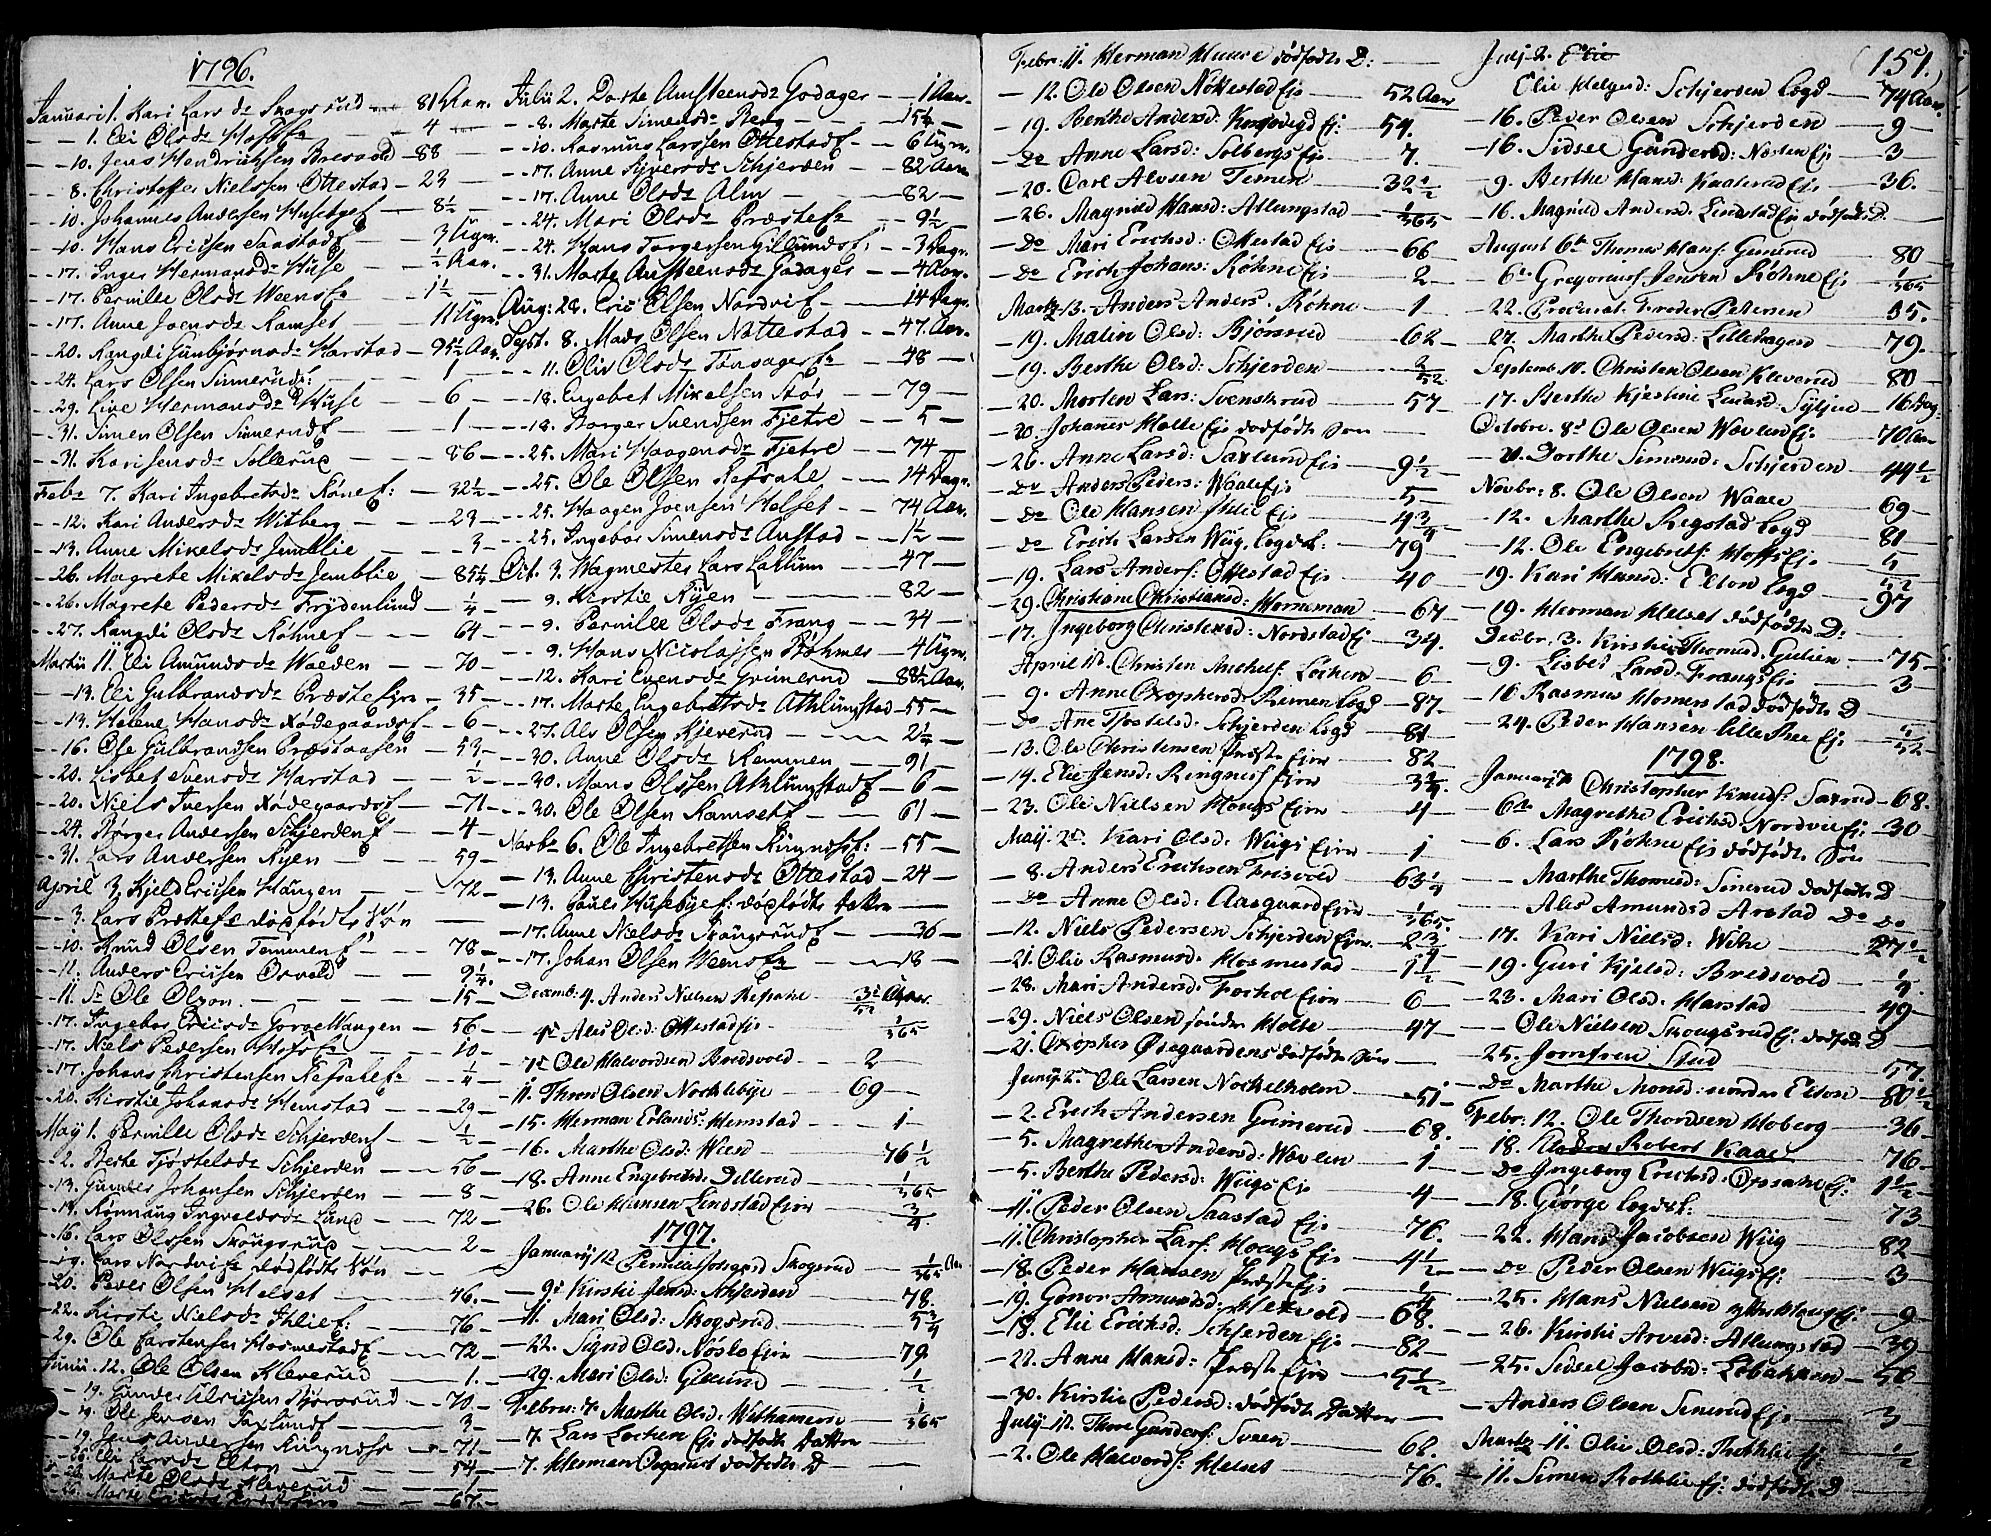 1796.
Januari 1. Kari Lars dr Skogsrud 81 Aar.
1. Eli Olsdr Hoffsf 4
10. Jens Hendrichsen Bresvold 88
8. Christoffer Nielssen Ottestad 23
10. Johannes Andersen Husebyef 8½
10. Hans Ericsen Saastadf 3 Ugr.
17. Inger Hermansdr Huse ½ Aar.
17. Pernille Olsdr Weensf 1½
17. Anne Joensdr Ramset 11 Ugr.
20. Rangdi Gunbjørnsdr Harstad 95½ Aar.
24. Lars Olsen Simerudf: 1
29. Live Hermansdr Huse 6
31. Simen Olsen Simerudf 1
31. Kari Jensdr Sollerud 86
Febr 7. Kari Ingebretsdr Rønef: 32½
12. Kari Andersdr Witberg 23
13. Anne Mikelsdr Jemblie 3
26. Magrete Mikelsdr Jemblie 85¼
26. Magrete Pedersdr Frydenlund ¼
27. Rangdi Olsdr Røhnef 64
Martii 11. Eli Amundsdr Waeden 70
13. Eli Gulbrandsdr Præsteejen 35
13. Helene Hansdr Nødegaardsf 6
16. Ole Gulbrandsen Præstaasen 53
20. Lisbet Svensdr Harstad ½
20. Niels Iversen Nødegaardsf 71
24. Børger Andersen Schjerdenf 4
31. Lars Andersen Ryen 59
April 3. Kjeld Ericsen Haugen 72
3. Lars Præstef dødfødte Søn
10. Knud Olsen Temmenf 78
11. Anders Ericsen Osvold 9¼
11. Sr Ole Olson 15
17. Ingebor Ericsdr Gorgehaugen 56
17. Niels Pedersen Hofsf 10
17. Johans Christensen Refsahlef ¼
20. Kirstie Johansdr Hemstad 29
May 1. Pernille Olsdr Schjerdenf ½
2. Berte Tjøstelsdr Schjerden 56
13. Gunder Johansen Schjerden 8
14. Rønnaug Ingvaldsdr Lund 72
16. Lars Olssen Skougsrud 2
19. Lars Nordvik dødfødte Søn
20. Peder Olsen Helset 46
22. Kirsti Nielsdr Ihlief: 76
29. Ole Carstensen Hosmestadf 72
Junii 12. Ole Olsen Kleverud 1
19. Gunder Ulrichsen Bjørnerud 70
19. Ole Jensen Saxlundf 3
19. Jens Andersen Ringnæsf 71
26. Eli Larsdr Elton 54
26. Marte Olsdr Kleverud 1
67
Julii 2. Dorte Amsteensdr Godager 1 Aar.
8. Marte Simensdr Berg 15¼
10. Rasmus Larssen Ottestadf 6 Ugr.
17. Anne Syversdr Schjerden 82 Aar.
17. Anne Olsdr Alm 82
24. Mari Olsdr Præstef 9½
24. Hans Torgersen Gillundsf. 3 Dage
31. Marte Amsteensdr Godager 4 Aar.
Aug: 28. Eric Olsen Nordvif 14 Dage
Sept. 8. Mads Olsen Nottestad 47 Aar.
11. Oliv Olsdr Tønsagerf 48
18. Engebet Mikelsen Stør 79
18. Børger Svendsen Fjetre 5
25. Mari Haagensdr Fjetre 74
25. Ole Olsen Refsahl 14 Dage
25. Haagen Joensen Helset 74 Aar.
25. Ingebor Simensdr Aastad 1½
Oct. 3. Wagmester Lars Lallum 47
9. Kirstie Ryen 82
9. Pernille Olsdr Frang 34
9. Hans Nicolajsen Bøhmer 4 Ugr.
12. Kari Evensdr Grimerud 88½ Aar.
17. Marte Engebretsdr Athlungstad 55
27. Als Olsen Kjeverud 2¼
30. Anne Olsdr Remmen 91
30. Hans Olssen Athlungstadf 6
30. Ole Olsen Ramsetf 61
Novbr 6. Ole Ingebretsen Ringnæsf: 55
13. Anne Christensdr Ottestad 24
13. Pauls Husebyef: dødfødte datter
17. Anne Nielsdr Skaugsrudf 36
17. Johan Olsen Weensf 18
Decemb: 4. Anders Nielsen Refsahl 3/52 Aar
4de Ales Olsd: Ottestad Ejr 1/365
7de Ole Halvordsen Bredsvold 2
11. Thron Olsen Nochlebye 69
15. Herman Erlands: Hemstad 1
16. Marthe Olsd: Weed 76½
18. Anne Engebretsd: Dellerud 1/365
26. Ole Hansen Lindstad Ejer ¾
1797.
Januarij 1te Pernille Joesd Skogsrud 1/365 Aar
9de Kirstie Jensd: Schjerden 78
11. Mari Olsd: Skogsrud 5¾
22. Sigrid Olsd: Nøsle Ejer 79
29. Mari Olsd: Gillund ½
Febru: 7de Marthe Olsd: Withammer 1/365
7. Lars Lochen Ejr dødfødte Datter
7. Herman dødfødte D
Febr: 11. Herman Huuse dødfødte D:
12. Ole Olsen Nøttestad Ejr 52 Aar
19. Berthe Andersd: Ejr 54.
do Anne Larsd: Solbergs Ejr 7.
20. Carl Alvsen Temen 32½
26. Magnild Hansd: Attungstad 1/365
do Mari Erichsd: Ottestad Ejr 66
do Erich Johans: Røhne Ejr 2
Martz 13. Anders Anders. Røhne 1
19. Malin Olsd: Bjørnrud 62
19. Berthe Olsd: Schjerden 2/52
20. Morten Lars: Svenskrud 57
20. Johanes Holte Ejr dødfødte Søn
26. Anne Larsd: Saxlund Ejr 9½
do Anders Peders: Waale Ejr 5
do Ole Hansen Ihlie Ejr 4¾
do Erich Larsen Wiig Logd: 79
19. Lars Anders: Ottestad Ejr 40
29. Christiane Christiansd: Horneman 67
17. Ingeborg Christensd: Nordstad Ej 34.
April 1te Christen Michels: Løchen 6
9. Anne Christophersd: Remen Logd 87.
do Ane Tjostelsd: Schjerden Logd 81
13. Ole Christensen Præste Ejer 82
14. Elie Jensd: Ringnes Ejer 3¾.
23. Ole Nielsen Hougs Ejer 4
Maij. 2de. Kari Olsd: Wiigs Ejer 1
8. Anders Erichsen Frisvold 63¼
do Anne Olsd: Aasgaard Ejer 1/365
12. Niels Pedersen Schjerden Ejer 2¾
21. Olie Rasmusd. Hosmestad 1½
28. Mari Andersd: Fochol Ejer 6
29. Niels Olsen søndre Holte 47
21. Christopher Øvegaardens dødfødte Søn
Junij 2de Ole Larsen Nockelholm 51
2. Erich Andersen Grimerud 68.
5. Magrethe Andersd: Wavlen 1
5. Berthe Pedersd: Wiigs Ejr 4
11. Peder Olsen Saastad Ejr 76.
11. Christopher Lars: Hougs Ejr 4½
18. Peder Hansen Præste Ejr ¼
19. Gonor Amundsd: Hexvold 68.
18. Elie Erichsd: Schjerden Ejr 82
22. Anne Hansd: Præste Ejer 5½
30. Kirstie Pedersd: dødfødte Datter
Julij 1te. Thore Gunders: Sveen 68.
2. Ole Halvords: Helset 76.
(151.)
Julj. 2. Elie
Elie Helgesd: Schjerden Logd 74 Aar
16. Peder Olsen Schjerden 9
16. Sidsel Gundersd: Nøsten Ejr 3
9. Berthe Hansd: Knaterud Ejr 36.
16. Magnild Andersd. Lindstad Ejr dødfødte D.
August 6te Thomas Hans: Gunerud 80
6te Gregorius Jensen Røhne Ejr 1/365
22. Procurat. Freder Petersen 35.
27. Marthe Pedersd: Lillehagen 79.
Septemb. 10. Christen Olsen Kleverud 80
17. Berthe Kjestine Larsd: Syljud 16 Dag
Octobr. 8de Ole Olsen Wavlen Ejr 70 Aar
Dorthe Simensd: Schjerden 44½
Novbr: 8. Ole Olsen Waale 69
12. Marthe Regstad Logd 81
12. Ole Engebrets: Hoffs Ejr
19. Kari Hansd: Elton Logd 97
19. Herman Helset dødfødte D:
Decbr: 3. Kirstie Thomasd. Gulien 75
9. Lisbet Larsd: Frangs Ejr 3
16 Rasmus Homerstad dødfødte D
24. Peder Hansen lille Ree Ejr
1798.
Januarij Christopher Knuds: Saxrud 68.
6te Magrethe Erichsd Nordvie Ej. 30
6. Lars Røhne Ejr dødfødte Søn
Marthe Thomasd: Sinerud dødfødte D
Ales Amundsd Arstad do do
17. Kari Nielsd: Withe 27½
19. Guri Kjelsd: Bredsvold ¼
23. Mari Olsd: Harstad 49
Ole Nielsen Skougsrud Ej. dødfødte D
25. Jomfrue Stud 57.
do Marthe Monsd: nordre Elton 80½
Febr: 12. Ole Thordsen Moberg 36
18. Anders Robert Kaae 76
do Ingeborg Erichsd: Opsahl Ej: 1½
18. Gjørge Logdst: 73
22. Hans Jacobsen Wiig 82
do Peder Olsen Wiigs Ej: 3
25. Hans Nielsen yttre Houg Ej: 9
26. Kirsti Arvesd: Attungstad 39
25. Sidsel Jacobsd: Lobakken 56
Anders Olsen Sinerud Ejr 3
Martz 11. Olie Olsd: Rothlie Ej: ½
11. Simen Rothlie Ej: dødfødte D